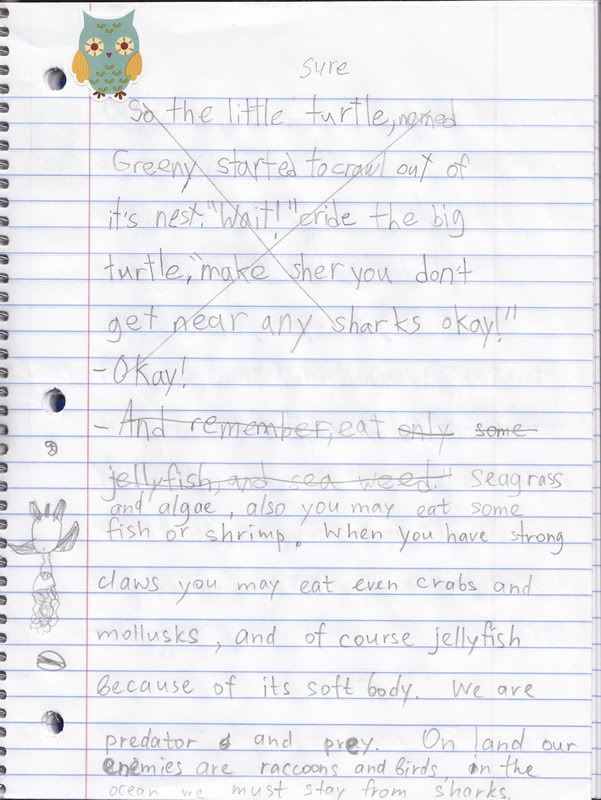 sure
So the little turtle, named
Greeny started to crawl out of
it's nest. "Wait!" cride the big
turtle, "make sher you don't
get near any sharks okay!"
- Okay!
- And remember, eat only some
jellyfish, and sea weed." Seagrass
and algae, also you may eat some
fish or shrimp. When you have strong
claws you may eat even crabs and
mollusks, and of course jellyfish
Because of its soft body. We are
predator and prey. On land our
enemies are raccoons and birds, in the
ocean we must stay from sharks.